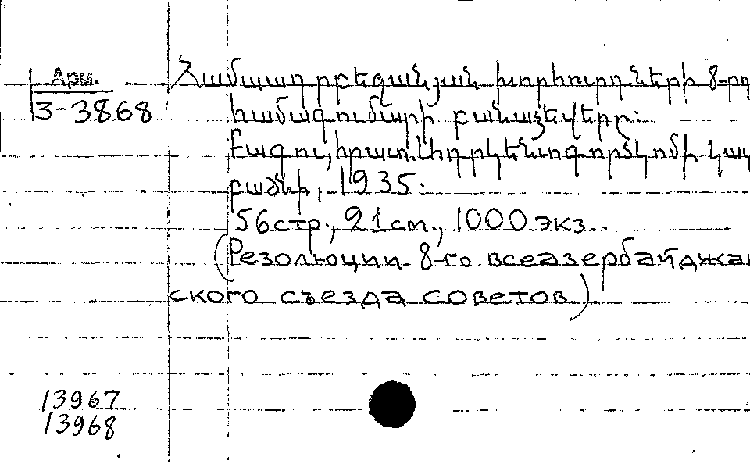 Арм.
3-3868
Համադրբեզանյան խորհուրդների 8-րդ
համագումարի բանաձևերը:
Բագու, հրատ.
բաժնի, 1935:
56 стр., 21 см., 1000 экз.
(Резолюции 8-го всеазербайджан
ского съезда советов)
13967
13968